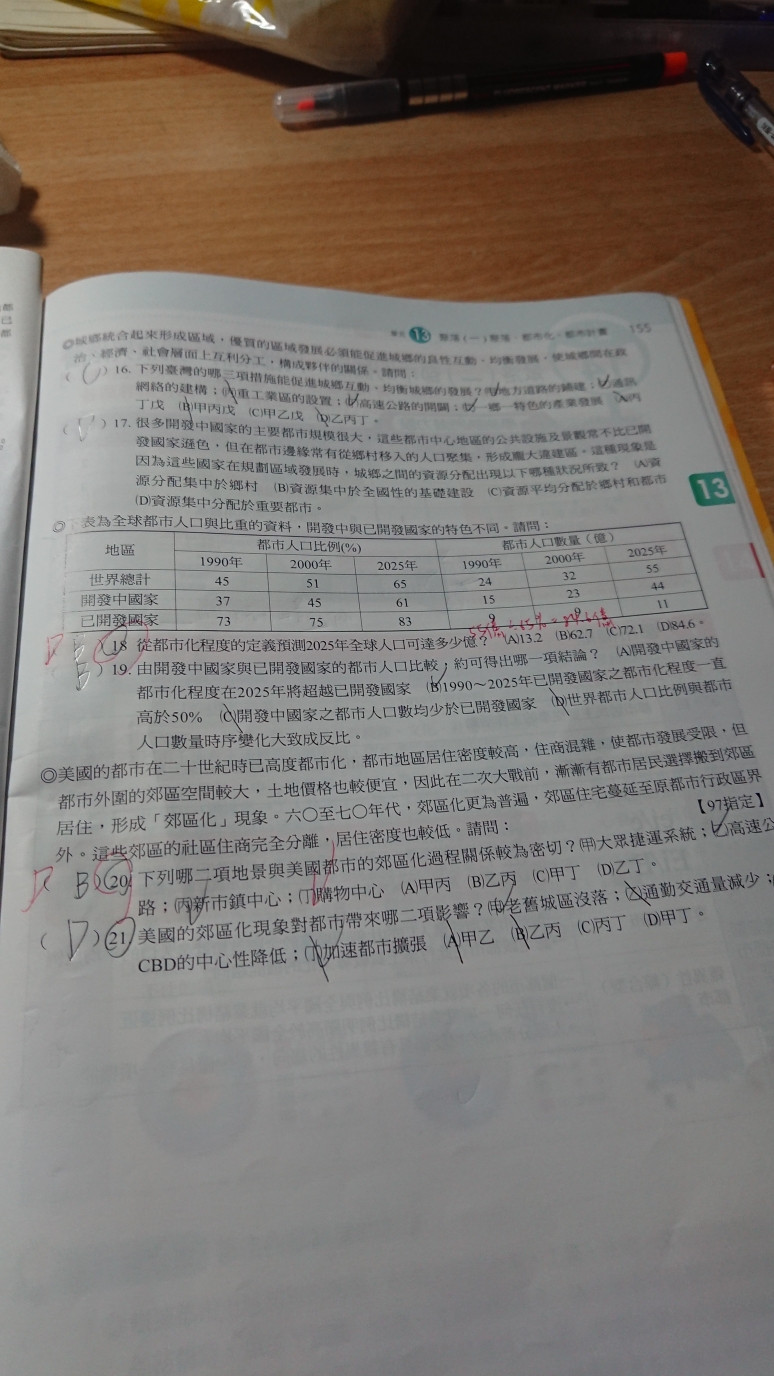 單元 13 聚落(一)聚落、都市化、都市計畫 155
◎城鄉統合起來形成區域，優質的區域發展必須能促進城鄉的良性互動、均衡發展，使城鄉間在政
治、經濟、社會層面上互利分工，構成夥伴的關係。請問：
( ) 16. 下列臺灣的哪三項措施能促進城鄉互動、均衡城鄉的發展？㈙地方道路的鋪建；㈚通訊
網絡的建構；㈛重工業區的設置；㈜高速公路的開闢；㈝一鄉一特色的產業發展 (A)丙
丁戊 (B)甲丙戊 (C)甲乙戊 (D)乙丙丁。
( D ) 17. 很多開發中國家的主要都市規模很大，這些都市中心地區的公共設施及景觀常不比已開
發國家遜色，但在都市邊緣常有從鄉村移入的人口聚集，形成龐大違建區。這種現象是
因為這些國家在規劃區域發展時，城鄉之間的資源分配出現以下哪種狀況所致？ (A)資
源分配集中於鄉村 (B)資源集中於全國性的基礎建設 (C)資源平均分配於鄉村和都市
(D)資源集中分配於重要都市。
13
◎下表為全球都市人口與比重的資料，開發中與已開發國家的特色不同。請問：
地區 都市人口比例(%) 都市人口數量（億）
1990年 2000年 2025年 1990年 2000年 2025年
世界總計 45 51 65 24 32 55
開發中國家 37 45 61 15 23 44
已開發國家 73 75 83 9 9 11
55億÷65%=84.6億
D B 18. 從都市化程度的定義預測2025年全球人口可達多少億？ (A)13.2 (B)62.7 (C)72.1 (D)84.6。
( B ) 19. 由開發中國家與已開發國家的都市人口比較，約可得出哪一項結論？ (A)開發中國家的
都市化程度在2025年將超越已開發國家 (B)1990～2025年已開發國家之都市化程度一直
高於50% (C)開發中國家之都市人口數均少於已開發國家 (D)世界都市人口比例與都市
人口數量時序變化大致成反比。
◎美國的都市在二十世紀時已高度都市化，都市地區居住密度較高，住商混雜，使都市發展受限，但
都市外圍的郊區空間較大，土地價格也較便宜，因此在二次大戰前，漸漸有都市居民選擇搬到郊區
居住，形成「郊區化」現象。六〇至七〇年代，郊區化更為普遍，郊區住宅蔓延至原都市行政區界
外。這些郊區的社區住商完全分離，居住密度也較低。請問： 【97指定】
D B ) 20. 下列哪二項地景與美國都市的郊區化過程關係較為密切？㈙大眾捷運系統；㈚高速公
路；㈛新市鎮中心；㈜購物中心 (A)甲丙 (B)乙丙 (C)甲丁 (D)乙丁。
( D ) 21. 美國的郊區化現象對都市帶來哪二項影響？㈙老舊城區沒落；㈚通勤交通量減少；
CBD的中心性降低；㈜加速都市擴張 (A)甲乙 (B)乙丙 (C)丙丁 (D)甲丁。